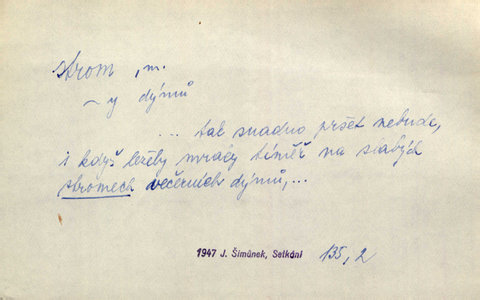 strom, m.
~y dýmů
... tak snadno pršet nebude,
i když ležely mraky téměř na slabých
stromech večerních dýmů,...
1947 J. Šimůnek, Setkání 135, 2